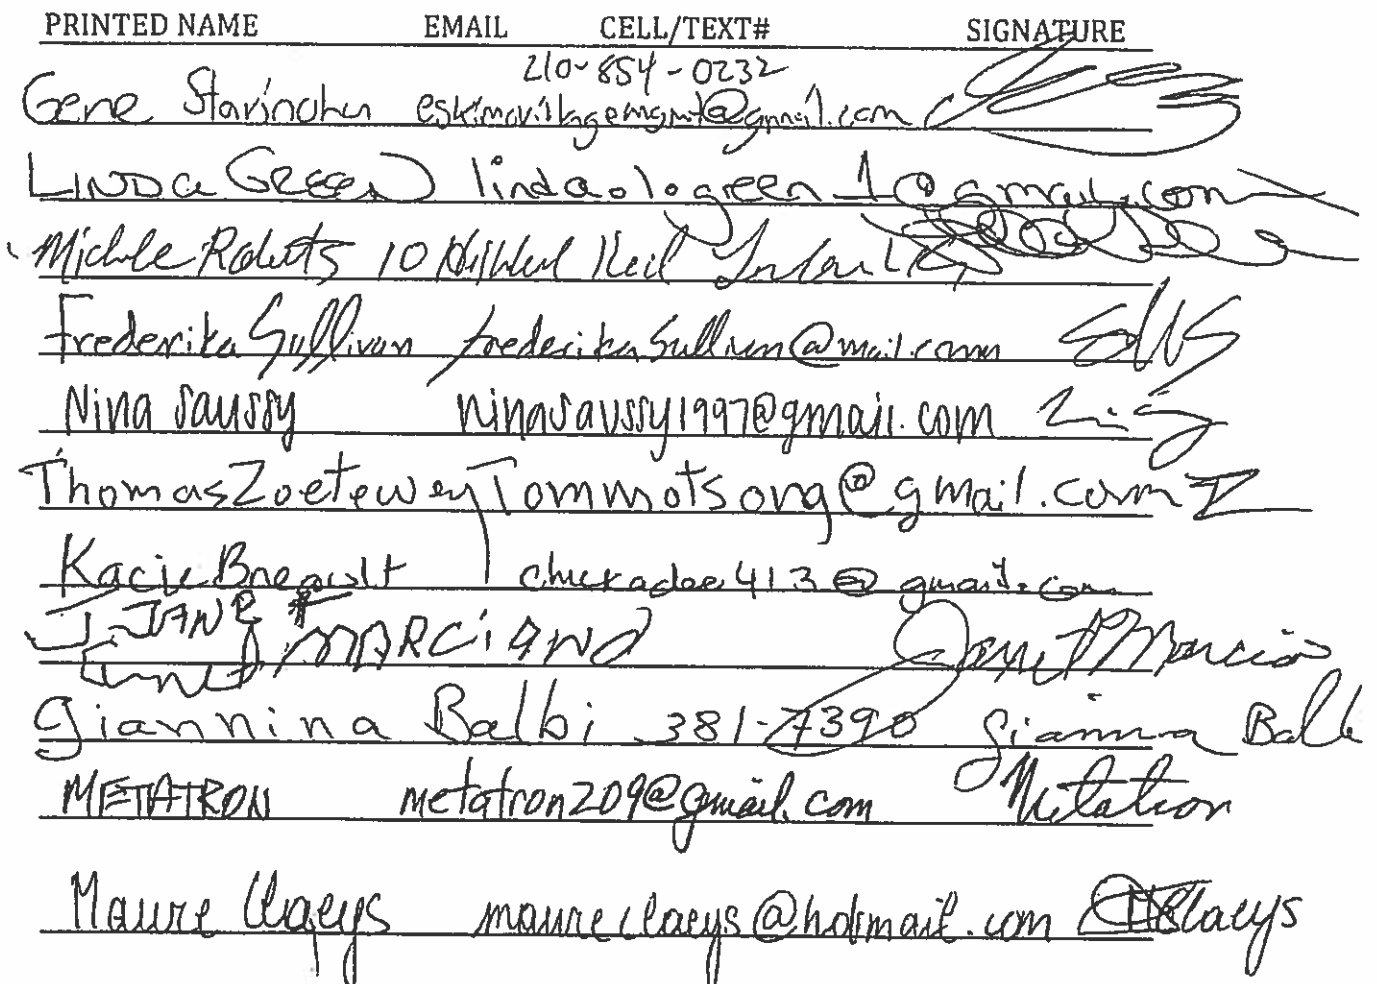 PRINTED NAME EMAIL CELL/TEXT# SIGNATURE
210-854-0232
Gene Starinchu eskimovillagemgmt@gmail.com
LINDA GREEN linda.lo.green_1@gmail.com
Michele Roberts 10
Frederika Sullivan frederikasullivan@mail.com
Nina Saussy ninasaussy1997@gmail.com
Thomas Zoetewey Tommotsong@gmail.com Z
Kacie Breault chickadee413@gmail.com
J. JANET MARCIANO Janet Marciano
Giannina Balbi 381-7390 Giannina Balb
METATRON metatron209@gmail.com Metatron
Maure Claeys maureclaeys@hotmail.com Claeys